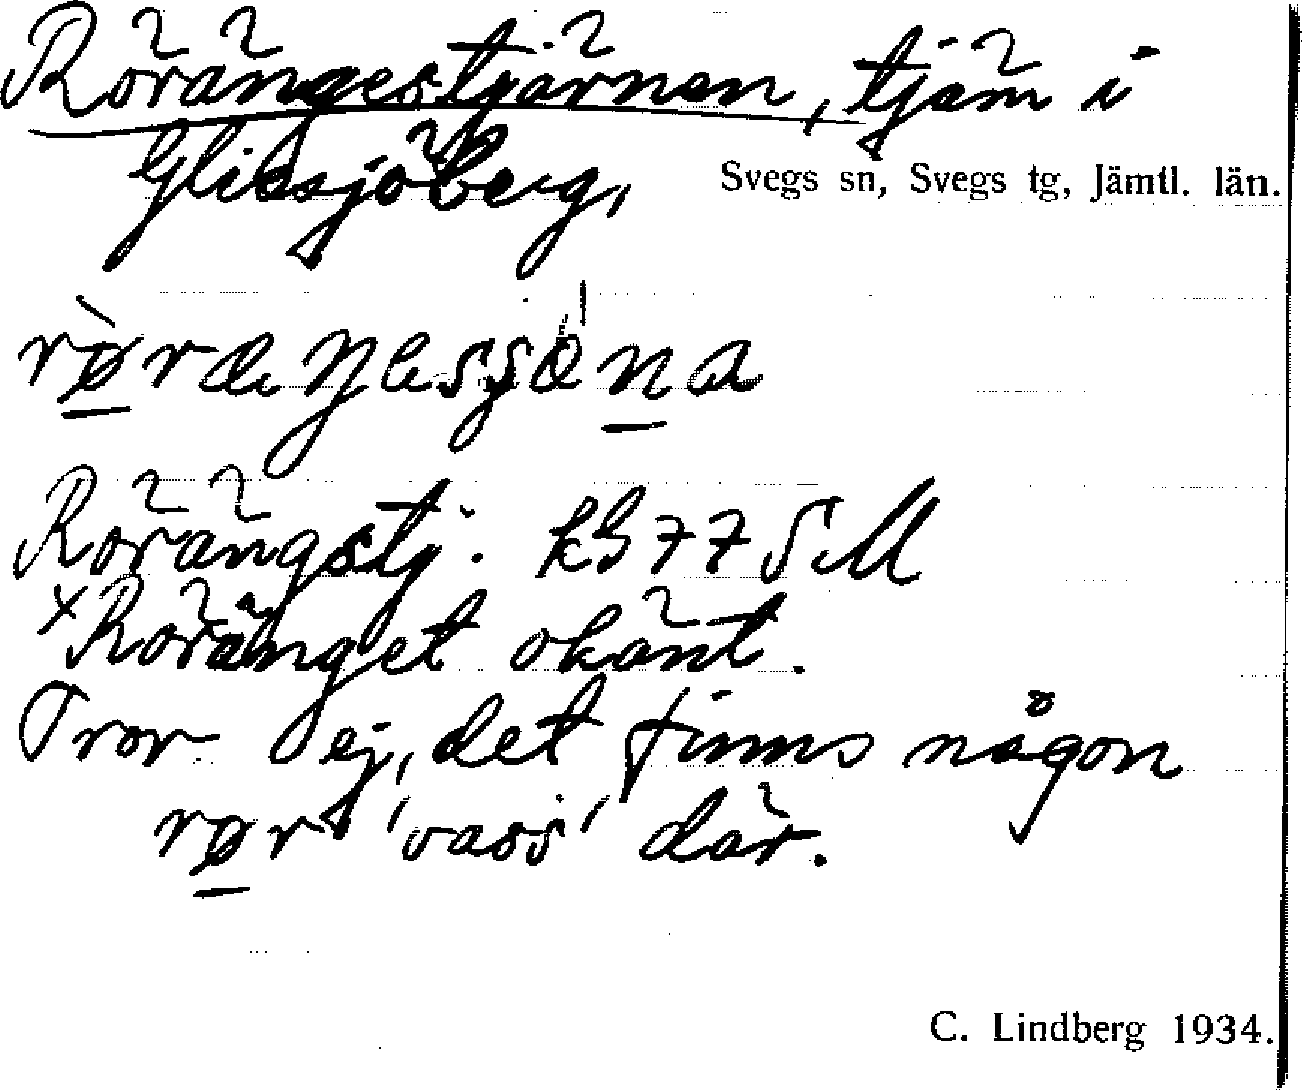 Rörängestjärnen, tjärn i
Glissjöberg,
Svegs sn, Svegs tg, Jämtl. län.
Rörängstj.
×Röränget okänt.
Tror ej, det finns någon
rør 'vass' där.
C. Lindberg 1934.